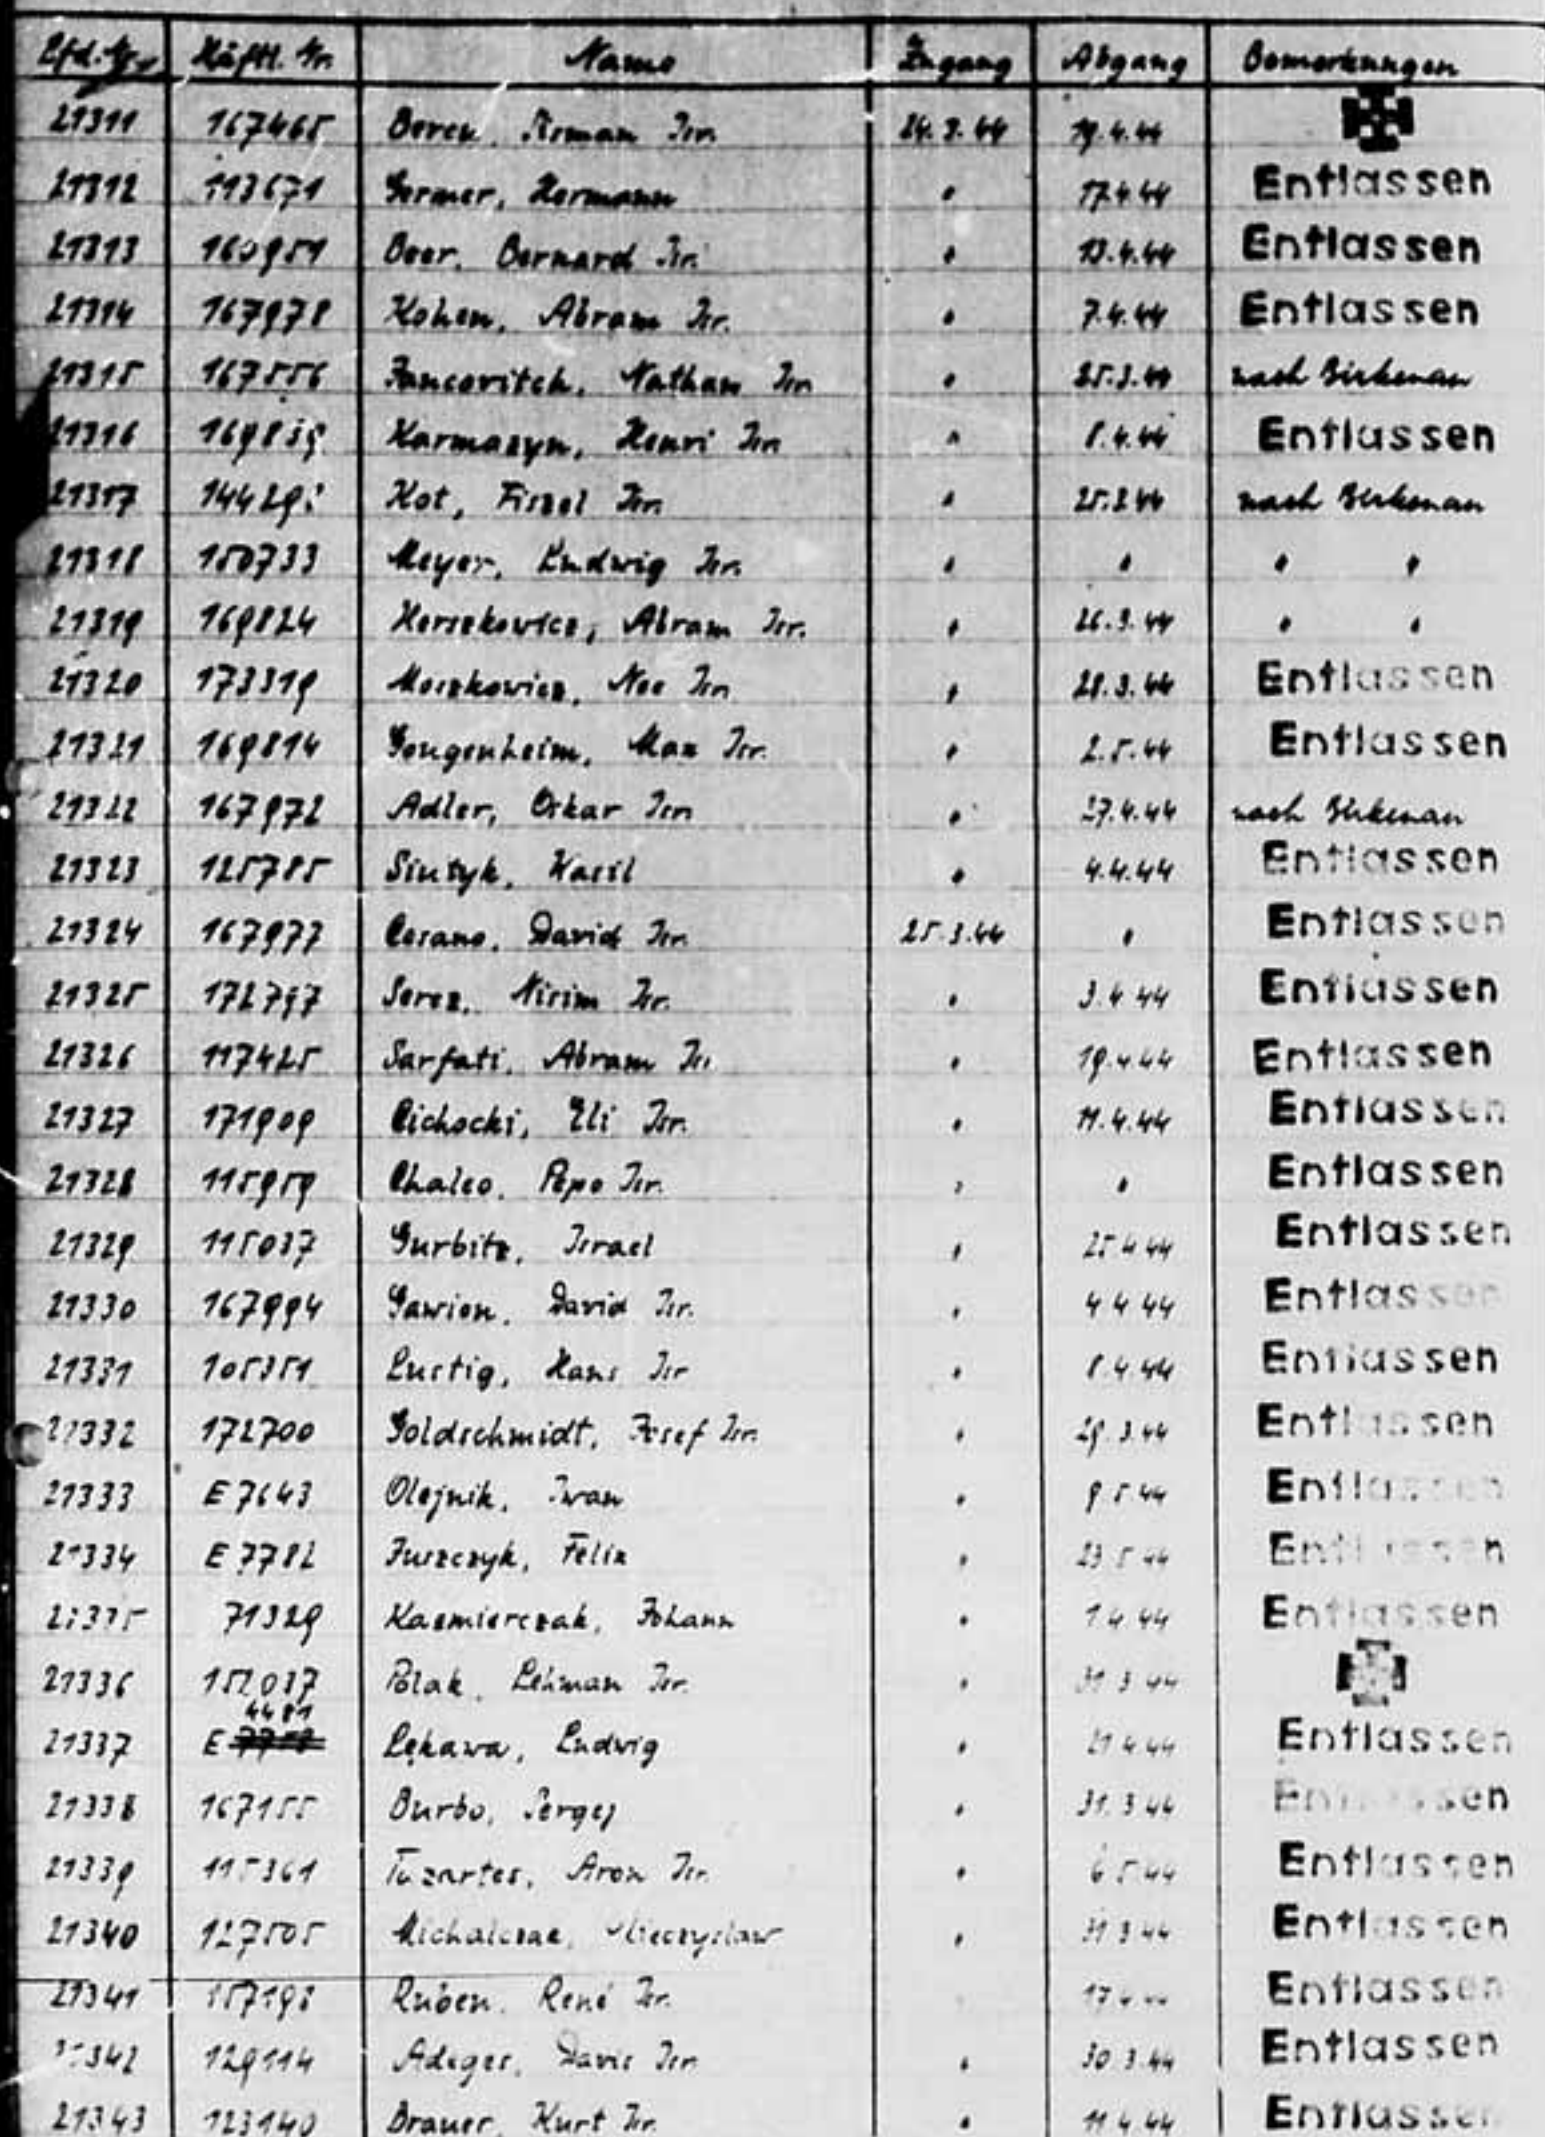 Lfd. Nr. Häftl. Nr. Name Zugang Abgang Bemerkungen
21311 167465 Roman Isr. 24.3.44 19.4.44
21312 113671 Germer, Hermann " 17.4.44 Entlassen
21313 160951 Beer, Bernard Isr. " 13.4.44 Entlassen
21314 167978 Kohen, Abram Isr. " 7.4.44 Entlassen
21315 167556 Jancovitch, Nathan Isr. " 25.3.44 nach Birkenau
21316 169839 Karmazyn, Henri Isr. " 8.4.44 Entlassen
21317 Kot, Fiszel Isr. " 25.3.44 nach Birkenau
21318 150733 Meyer, Ludwig Isr. " " " "
21319 169824 Herszkowicz, Abram Isr. " 26.3.44 " "
21320 173319 Moszkowicz, Noe Isr. " 28.3.44 Entlassen
21321 169814 Gougenheim, Max Isr. " 2.5.44 Entlassen
21322 167972 Adler, Oskar Isr. " 27.4.44 nach Birkenau
21323 125785 Sintyk, Wasil " 4.4.44 Entlassen
21324 167977 Cesano, David Isr. 25.3.44 " Entlassen
21325 172797 Isr. " 3.4.44 Entlassen
21326 117425 Sarfati, Abram Isr. " 19.4.44 Entlassen
21327 171909 Cichocki, Eli Isr. " 11.4.44 Entlassen
21328 115959 Chaleo, Pepo Isr. " " Entlassen
21329 115037 Gurbitz, Israel " 25.4.44 Entlassen
21330 167994 Gawien, David Isr. " 4.4.44 Entlassen
21331 105351 Lustig, Hans Isr. " 8.4.44 Entlassen
21332 172700 Goldschmidt, Josef Isr. " 29.3.44 Entlassen
21333 E 7643 Olejnik, Iwan " 9.5.44 Entlassen
21334 E 7782 Juszczyk, Felix " 23.5.44 Entlassen
21335 71329 Kazmierczak, Johann " 1.4.44 Entlassen
21336 152037 Polak, Lehman Isr. " 31.3.44
4481
21337 E Lękawa, Ludwig " 21.4.44 Entlassen
21338 167155 Burbo, Sergej " 31.3.44 Entlassen
21339 115361 Aron Isr. " 6.5.44 Entlassen
21340 127505 Mieczyslaw " 31.3.44 Entlassen
21341 Ruben, René Isr. Entlassen
21342 129114 Isr. " 30.3.44 Entlassen
21343 123140 Brauer, Kurt Isr. " 11.4.44 Entlassen